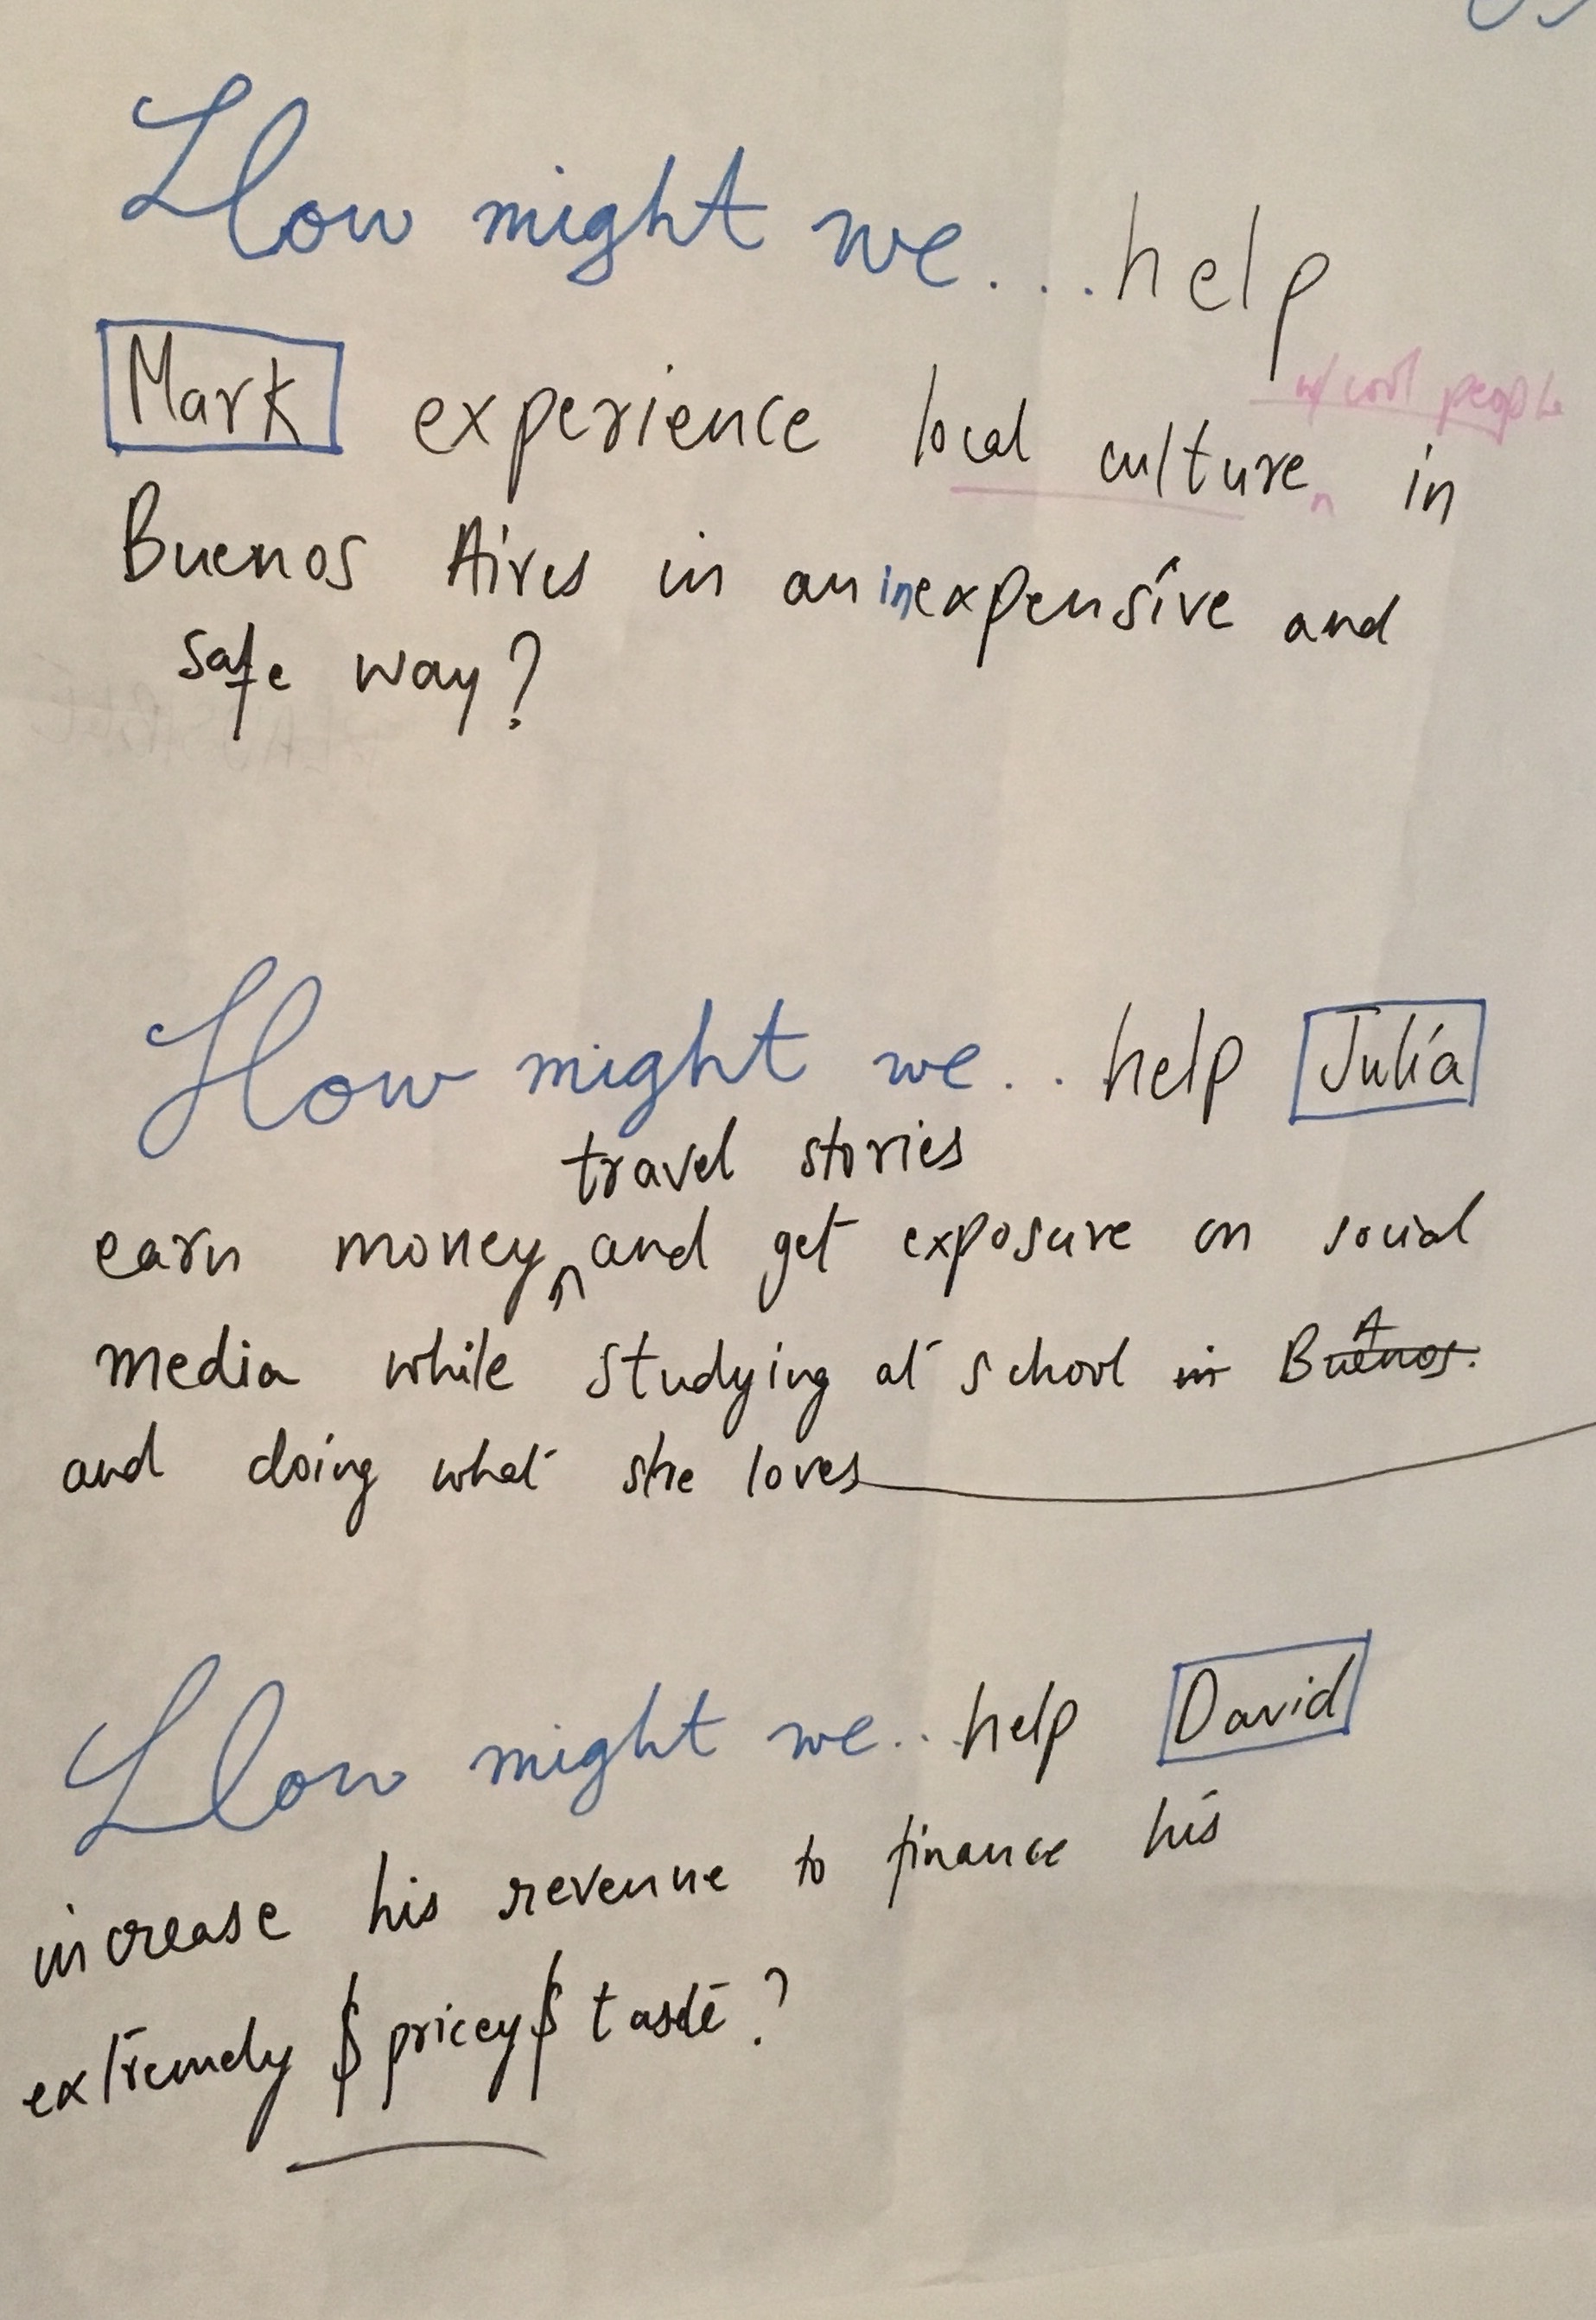 How might we... help
Mark experience local culture in
w/ cool people
Buenos Aires in an inexpensive and
safe way?
How might we... help Julia
travel stories
earn money and get exposure on social
media while studying at school in Buenos A.
and doing what she loves
How might we... help David
increase his revenue to finance his
extremely $pricey$ taste?